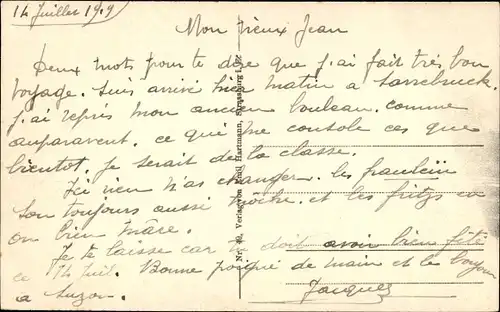 14 Juillet 1919
Mon vieux Jean
Deux mots pour te dire que j'ai fait très bon
voyage. Suis arrivé hier matin a Sarrebruck.
J'ai repris mon ancien bouleau. comme
auparavent. ce que me console ces que
bientot. Je serait de la classe.
Ici rien n'as changer. les
son toujours aussi moche. et les fritz en
on bien mare.
Je te laisse car tu doit avoir bien fété
ce 14 Juil. Bonne poigné de main et le bonjour
a Suzon.
Jacques
Verlag von Emil Hartmann, Strassburg i. Els.